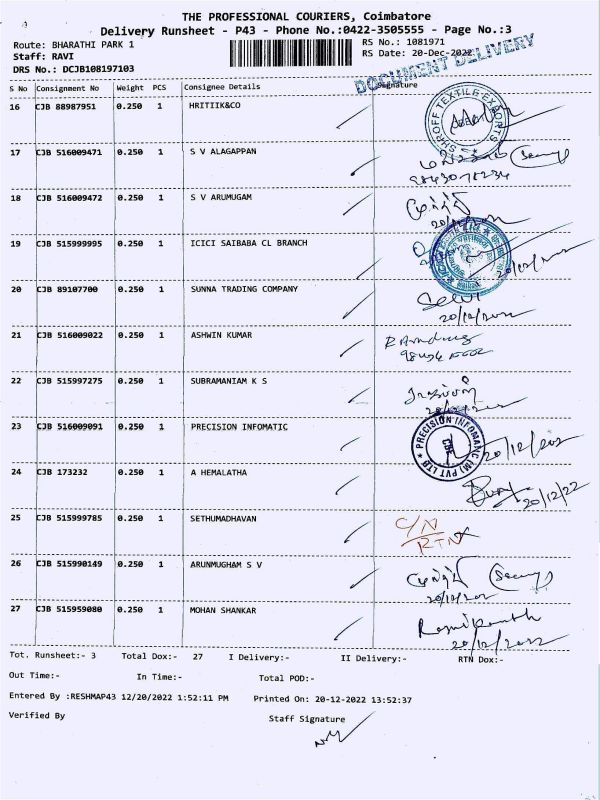 THE PROFESSIONAL COURIERS, Coimbatore
Delivery Runsheet - P43 - Phone No.:0422-3505555 - Page No.:3
Route: BHARATHI PARK 1 RS No.: 1081971
Staff: RAVI RS Date: 20-Dec-2022
DRS No.: DCJB108197103
DOCUMENT DELIVERY
S No Consignment No Weight PCS Consignee Details Signature
16 CJB 88987951 0.250 1 HRITIIK&CO
SHROFF TEXTILE EXPORTS
17 CJB 516009471 0.250 1 S V ALAGAPPAN
18 CJB 516009472 0.250 1 S V ARUMUGAM
19 CJB 515999995 0.250 1 ICICI SAIBABA CL BRANCH
20/12/2022
20 CJB 89107700 0.250 1 SUNNA TRADING COMPANY
Selvi
20/12/2022
21 CJB 516009022 0.250 1 ASHWIN KUMAR
22 CJB 515997275 0.250 1 SUBRAMANIAM K S
23 CJB 516009091 0.250 1 PRECISION INFOMATIC
PRECISION INFOMATIC (M) PVT LTD
CBE
20/12/202
24 CJB 173232 0.250 1 A HEMALATHA
20/12/22
25 CJB 515999785 0.250 1 SETHUMADHAVAN
C/N
RTN
26 CJB 515990149 0.250 1 ARUNMUGHAM S V
27 CJB 515959080 0.250 1 MOHAN SHANKAR
20/12/2022
Tot. Runsheet:- 3 Total Dox:- 27 I Delivery:- II Delivery:- RTN Dox:-
Out Time:- In Time:- Total POD:-
Entered By :RESHMAP43 12/20/2022 1:52:11 PM Printed On: 20-12-2022 13:52:37
Verified By Staff Signature